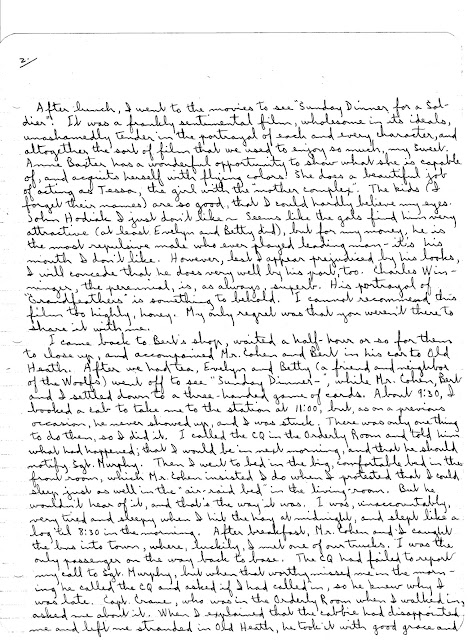 2.
After lunch, I went to the movies to see "Sunday Dinner for a Sol-
dier". It was a frankly sentimental film, wholesome in its ideals,
unashamedly tender in the portrayal of each and every character, and
altogether the sort of film that we used to enjoy so much, my Sweet.
Anne Baxter has a wonderful opportunity to show what she is capable
of, and acquits herself with flying colors. She does a beautiful job
of acting as Tessa, the girl with the "mother complex". The kids (I
forget their names) are so good, that I could hardly believe my eyes.
John Hodiak I just don't like ~ Seems like the gals find him very
attractive (at least Evelyn and Betty did), but for my money, he is
the most repulsive male who ever played leading man - it's his
mouth I don't like. However, lest I appear prejudiced by his looks,
I will concede that he does very well by his part, too. Charles Win-
ninger, the perennial, is, as always, superb. His portrayal of
"Grandfathers" is something to behold. I cannot recommend this
film too highly, honey. My only regret was that you weren't there to
share it with me.
I came back to Bert's shop, waited a half-hour or so for them
to close up, and accompanied Mr. Cohen and Bert in his car to Old
Heath. After we had tea, Evelyn and Betty (a friend and neighbor
of the Woolfs) went off to see "Sunday Dinner-", while Mr. Cohen, Bert
and I settled down to a three-handed game of cards. About 9:30, I
booked a cab to take me to the station at 11:00, but, as on a previous
occasion, he never showed up, and I was stuck. There was only one thing
to do then, so I did it. I called the CQ in the Orderly Room and told him
what had happened; that I would be in next morning, and that he should
notify Sgt. Murphy. Then I went to bed in the big, comfortable bed in the
front room, which Mr. Cohen insisted I do when I protested that I could
sleep just as well in the "air-raid bed" in the living-room. But he
wouldn't hear of it, and that's the way it was. I was, unaccountably,
very tired and sleepy when I hit the hay at midnight, and slept like a
log 'til 8:30 in the morning. After breakfast, Mr. Cohen and I caught
the bus into town, where, luckily, I met one of our trucks. I was the
only passenger on the way back to base. The CQ had failed to report
my call to Sgt. Murphy, but when that worthy missed me in the morn-
ing he called the CQ and asked if I had called in, so he knew why I
was late. Capt. Crane, who was in the Orderly Room when I walked in,
asked me about it. When I explained that the cabbie had disappointed
me and left me stranded in Old Heath, he took it with good grace and